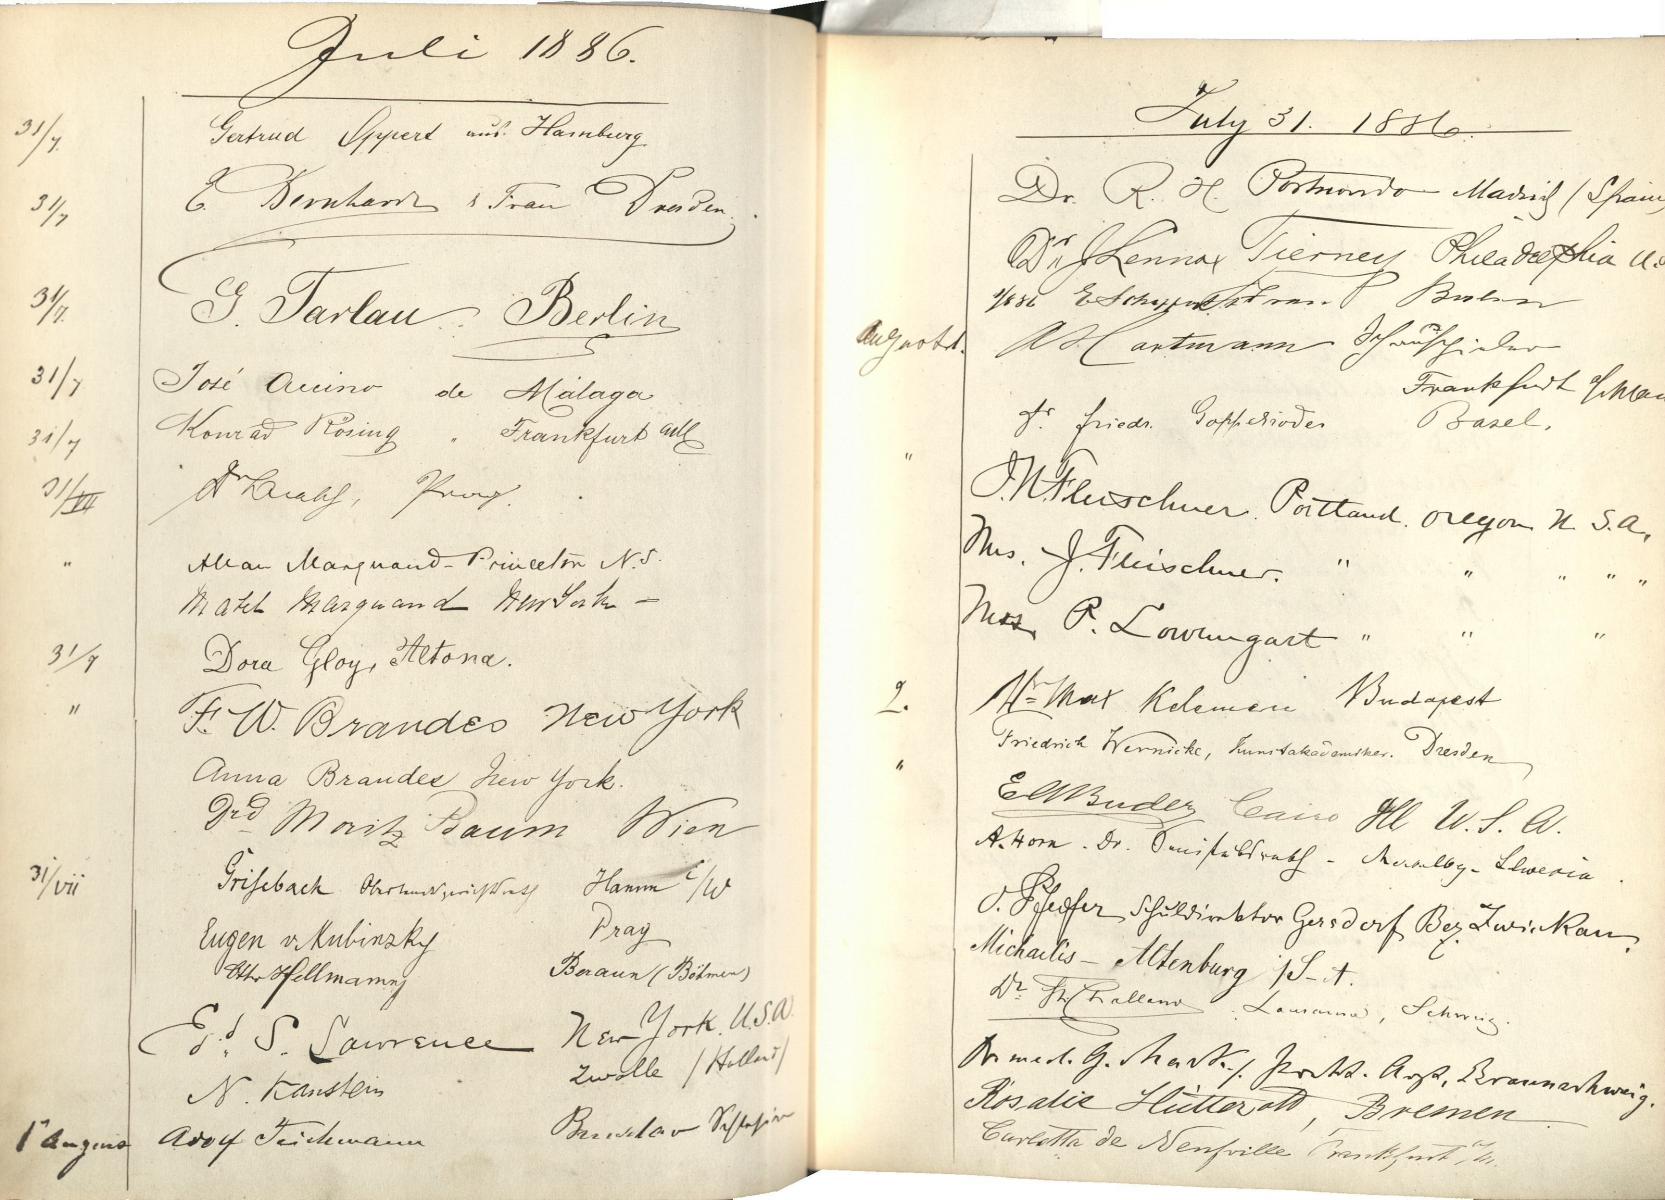 Juli 1886.
31/7. Gertrud Oppert aus Hamburg
31/7 E. Bernhardt & Frau Dresden.
31/7. G. Tarlau. Berlin
31/7 José de Málaga
31/7 Konrad Rösing " Frankfurt a/M
31/VII Dr Prag.
" Allan Marquand - Princeton N.J.
Marquand New York -
31/7 Dora Gloy, Altona.
" F. W. Brandes New York
Anna Brandes New York.
Moritz Baum Wien
31/vii Grisebach Oberlandesgerichtsrath Hamm i/W
Eugen v. Kubinzky Prag
Otto Hellmann Beraun (Böhmen)
Ed. S. Lawrence New York. U.S.A.
N. Kanstein Zwolle /Holland/
1 August Adolf Teichmann Breslau Schlesien
July 31. 1886.
Dr. R. H. Portuondo Madrid (Spain)
Dr. J Lennox Tierney Philadelphia U.S
1/8 86
August 1. Hartmann
Frankfurt a/Main
" Dr. Friedr. Basel.
I. N. Fleischner. Portland. Oregon U. S. A.
Mrs. J. Fleischner. " " " " "
Mrs. P. Lowengart " " "
2. Max Kelemen Budapest
" Friedrich Wernicke, Kunstakademiker. Dresden
Buder Cairo Ill U. S. A.
A. Horn. Dr.
Pfeifer, Schuldirektor Gersdorf Bez. Zwickau.
Michaelis - Altenburg /S-A.
Dr. Challand Lausanne, Schweiz.
Dr med. G. prakt. Arzt, Braunschweig.
Rosalie Hütterott, Bremen
Carlotta de Neufville Frankfurt /M.